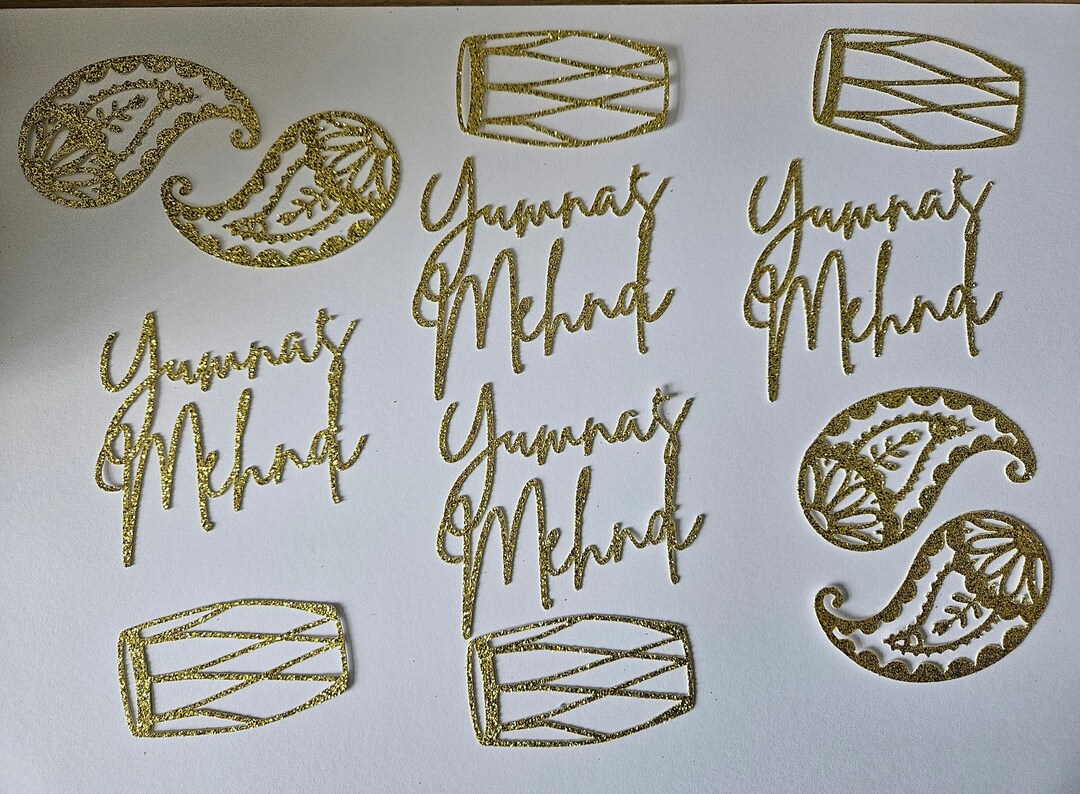 Yumna's
Mehndi
Yumna's
Mehndi
Yumna's
Mehndi
Yumna's
Mehndi